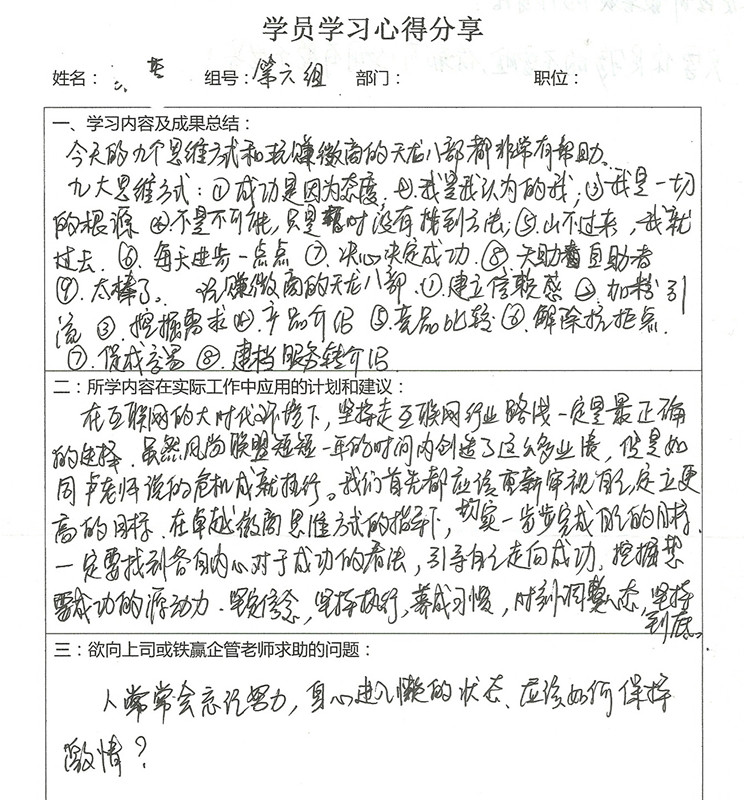 学员学习心得分享
姓名： 组号：第六组 部门： 职位：
一、学习内容及成果总结：
今天的九个思维方式和玩赚微商的天龙八部都非常有帮助。
九大思维方式：①成功是因为态度.②我是我认为的我；③我是一切
的根源 ④不是不可能，只是暂时没有找到方法；⑤山不过来，我就
过去.⑥.每天进步一点点 ⑦.决心决定成功.⑧.天助自助者
⑨.太棒了。 玩赚微商的天龙八部.①.建立信赖感 ②.加粉引
流 ③.挖掘需求④.产品介绍 ⑤.竞品比较 ⑥.解除抗拒点.
⑦.促成交易 ⑧.建档服务转介绍
二：所学内容在实际工作中应用的计划和建议：
在互联网的大时代环境下，坚持走互联网行业路线一定是最正确
的选择.虽然风尚联盟短短一年的时间内创造了这么多业绩，但是如
同卢老师说的危机成就执行。我们首先都应该重新审视自己，定立更
高的目标.在卓越微商思维方式的指导下，切实一步步完成自己的目标.
一定要找到各自内心对于成功的看法，引导自己走向成功.挖掘想
要成功的源动力.坚定信念，坚持执行，养成习惯，时刻调整心态，坚持
到底。
三：欲向上司或铁赢企管老师求助的问题：
人常常会忘记努力，身心进入懒的状态、应该如何保持
激情？